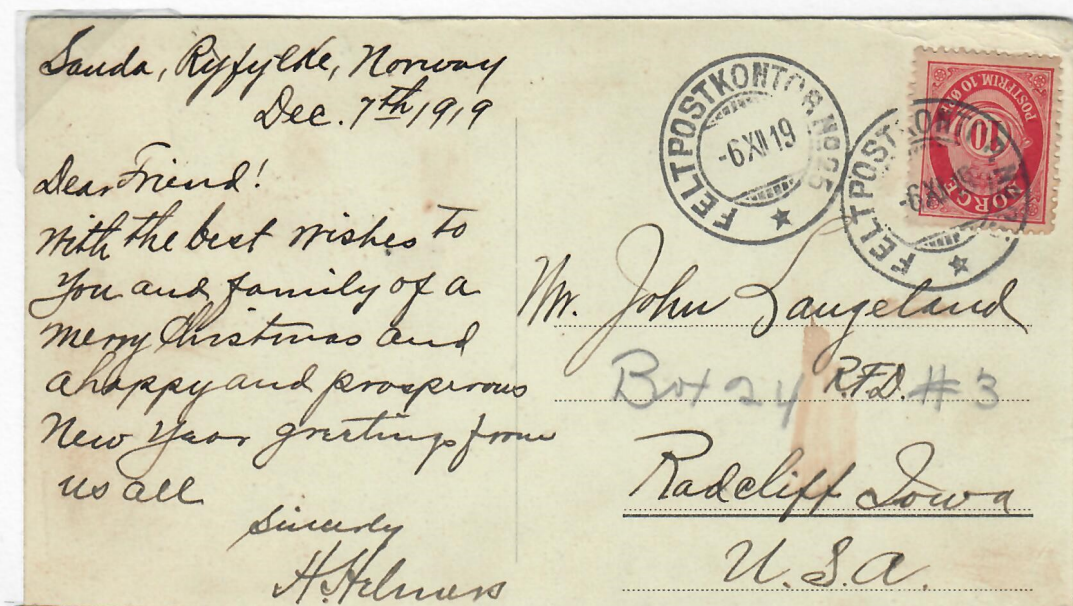 Sauda, Ryfylke, Norway
Dec. 7th 1919
Dear Friend!
With the best wishes to
You and family of a
merry Christmas and
a happy and prosperous
New Year greetings from
us all
Sincerely
H. Helmers
FELTPOSTKONTOR No 25
-6XII19
FELTPOSTKONTOR N
-6XI
POSTFRIM. 10 ØRE
10
NORGE
Mr. John Laugeland
Box 24 R.F.D. #3
Radcliff Iowa
U.S.A.